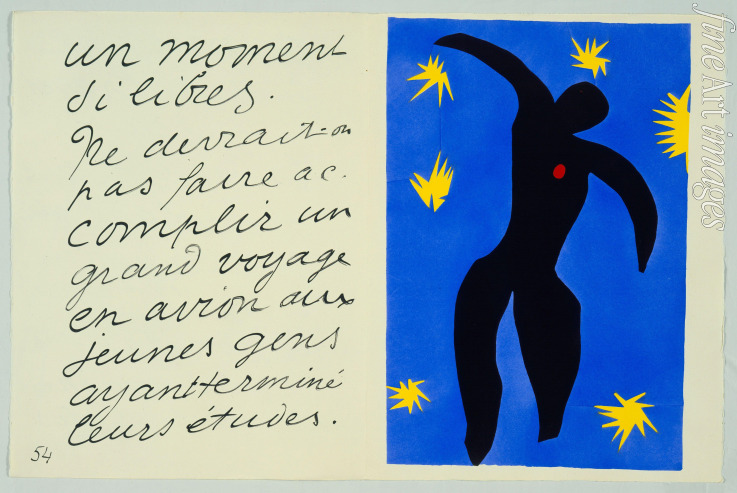 un moment
si libres.
Ne devrait-on
pas faire ac-
complir un
grand voyage
en avion aux
jeunes gens
ayant terminé
leurs études.
54
fine Art images